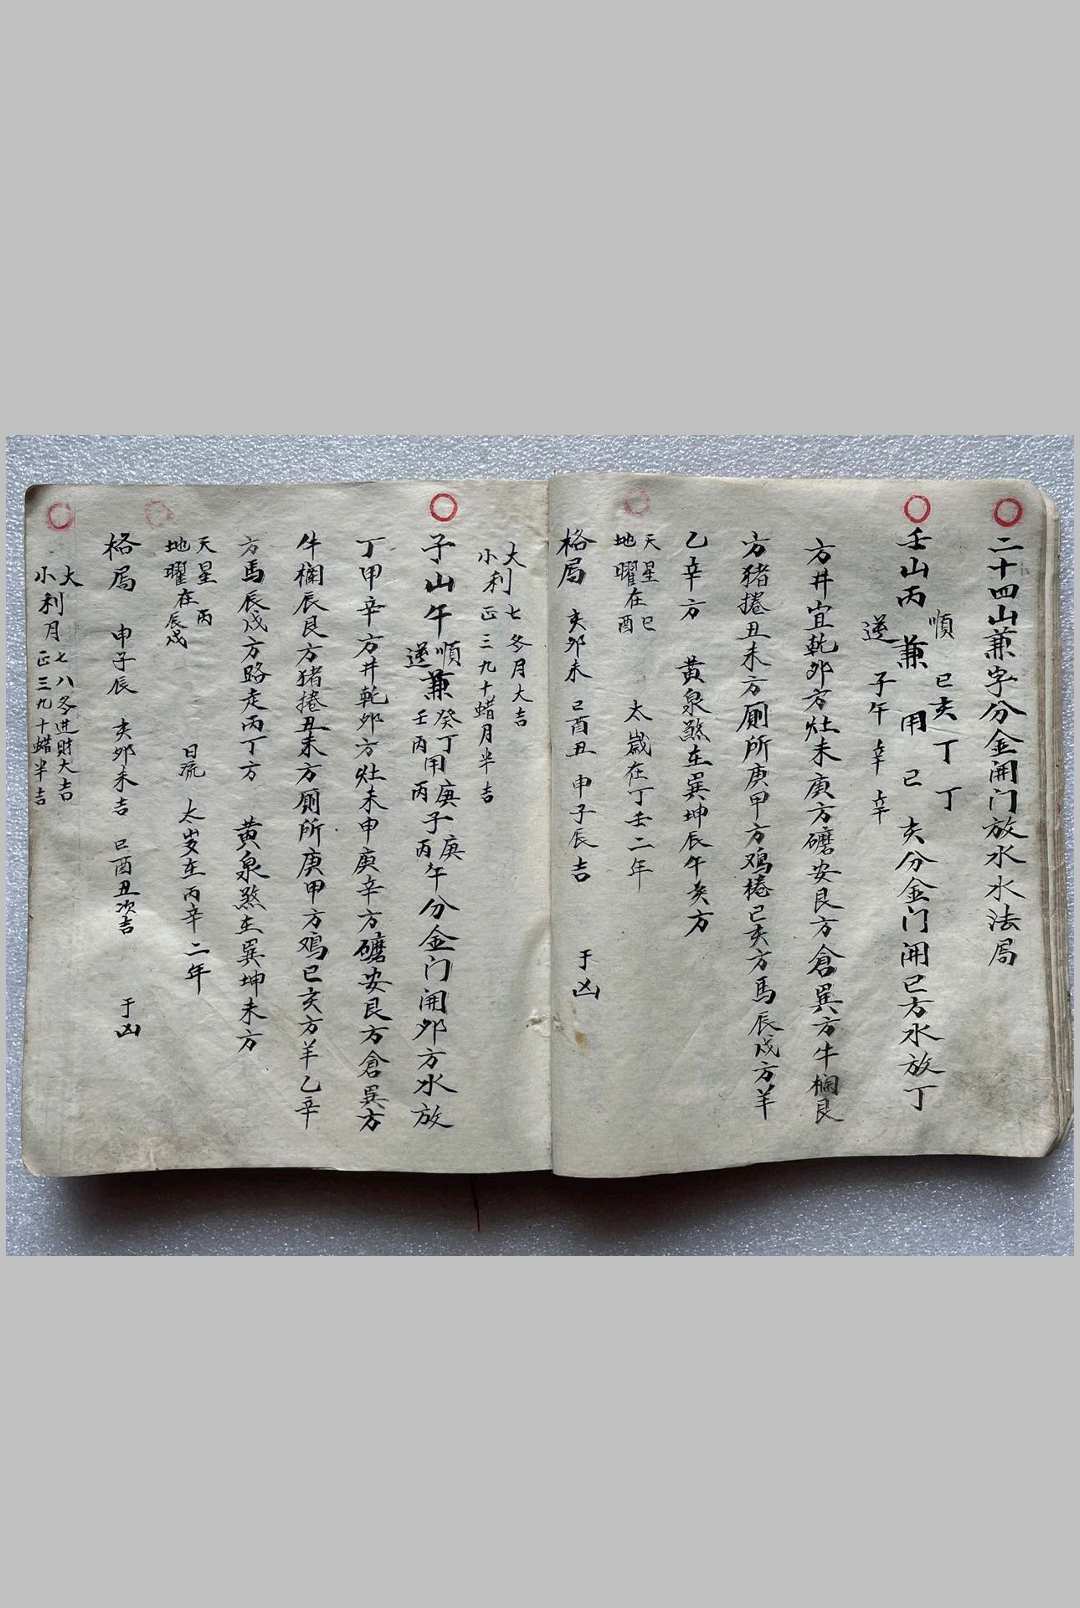 二十四山兼字分金開门放水水法局
壬山丙
順 巳亥丁丁
兼用巳亥分金门開巳方水放丁
逆 子午辛辛
方井宜乾卯方灶未庚方礳安艮方倉巽方牛欄艮
方猪捲丑未方厠所庚甲方鸡捲巳亥方馬辰戍方羊
乙辛方 黄泉煞在巽坤辰午亥方
天星巳
地曜在酉
太歲在丁壬二年
格局 亥卯未 巳酉丑 申子辰吉 于凶
大利七冬月大吉
小 正三九十蜡月半吉
子山午
順 癸丁庚庚
兼用子午分金门開卯方水放
逆 壬丙丙丙
丁甲辛方井乾卯方灶未申庚辛方礳安艮方倉巽方
牛欄辰艮方猪捲丑未方厠所庚甲方鸡巳亥方羊乙辛
方馬辰戍方路走丙丁方 黄泉煞在巽坤未方
天星丙
地曜在辰戍
日流 太岁在丙辛二年
格局 申子辰 亥卯未吉 巳酉丑次吉 于凶
大利月七八冬进財大吉
小 正三九十蜡半吉